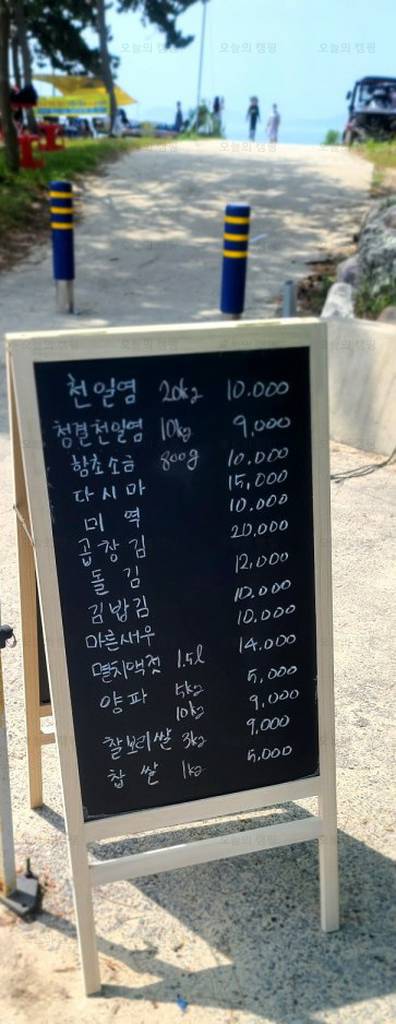 오늘의 캠핑 오늘의 캠핑 오늘의 캠핑
천일염 20kg 10.000
청결천일염 10kg 9,000
함초소금 800g 10,000
다시마 15,000
미역 10.000
곱창김 20,000
돌김 12,000
김밥김 10.000
마른새우 10,000
멸치액젓 1.5l 14,000
양파 5kg 5,000
10kg 9,000
찰보리쌀 3kg 9,000
찹쌀 1kg 5,000